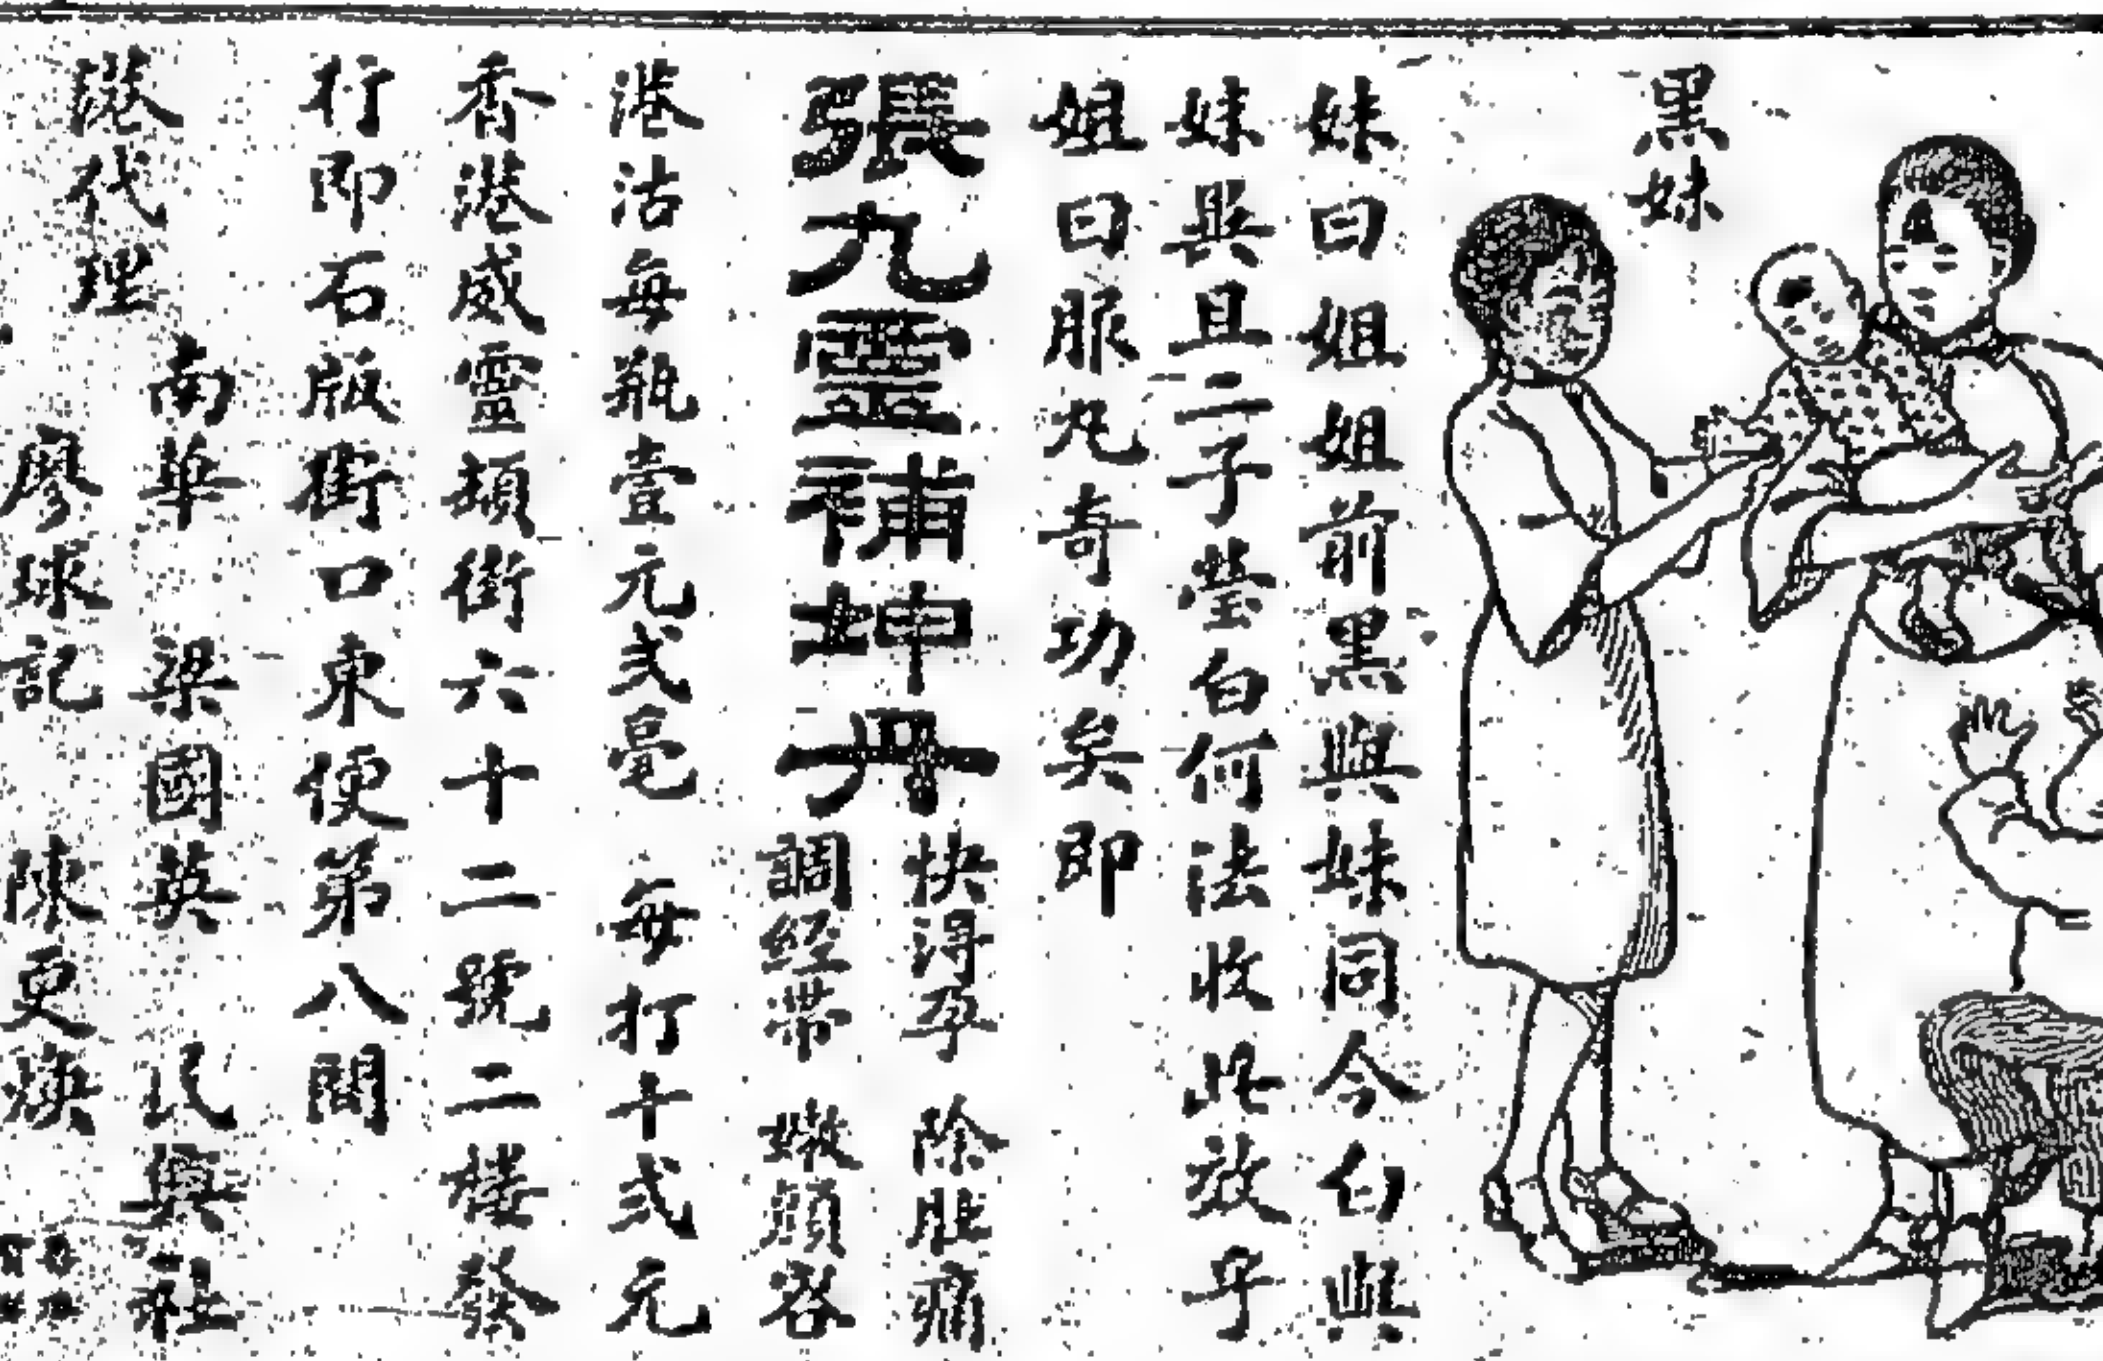 黑妹
妹曰姐姐前黑與妹同今白與
妹異且二子瑩白何法收此效乎
姐曰服丸奇功矣即
張九靈補坤丹
快得孕 除肚痛
調経帶 嫩顏容
港沽每瓶壹元弍毫 每打十弍元
香港威靈頓街六十二號二楼發
行即石版街口東便第八間
港代理
南華 梁國英 民興社
廖球記 陳更煥